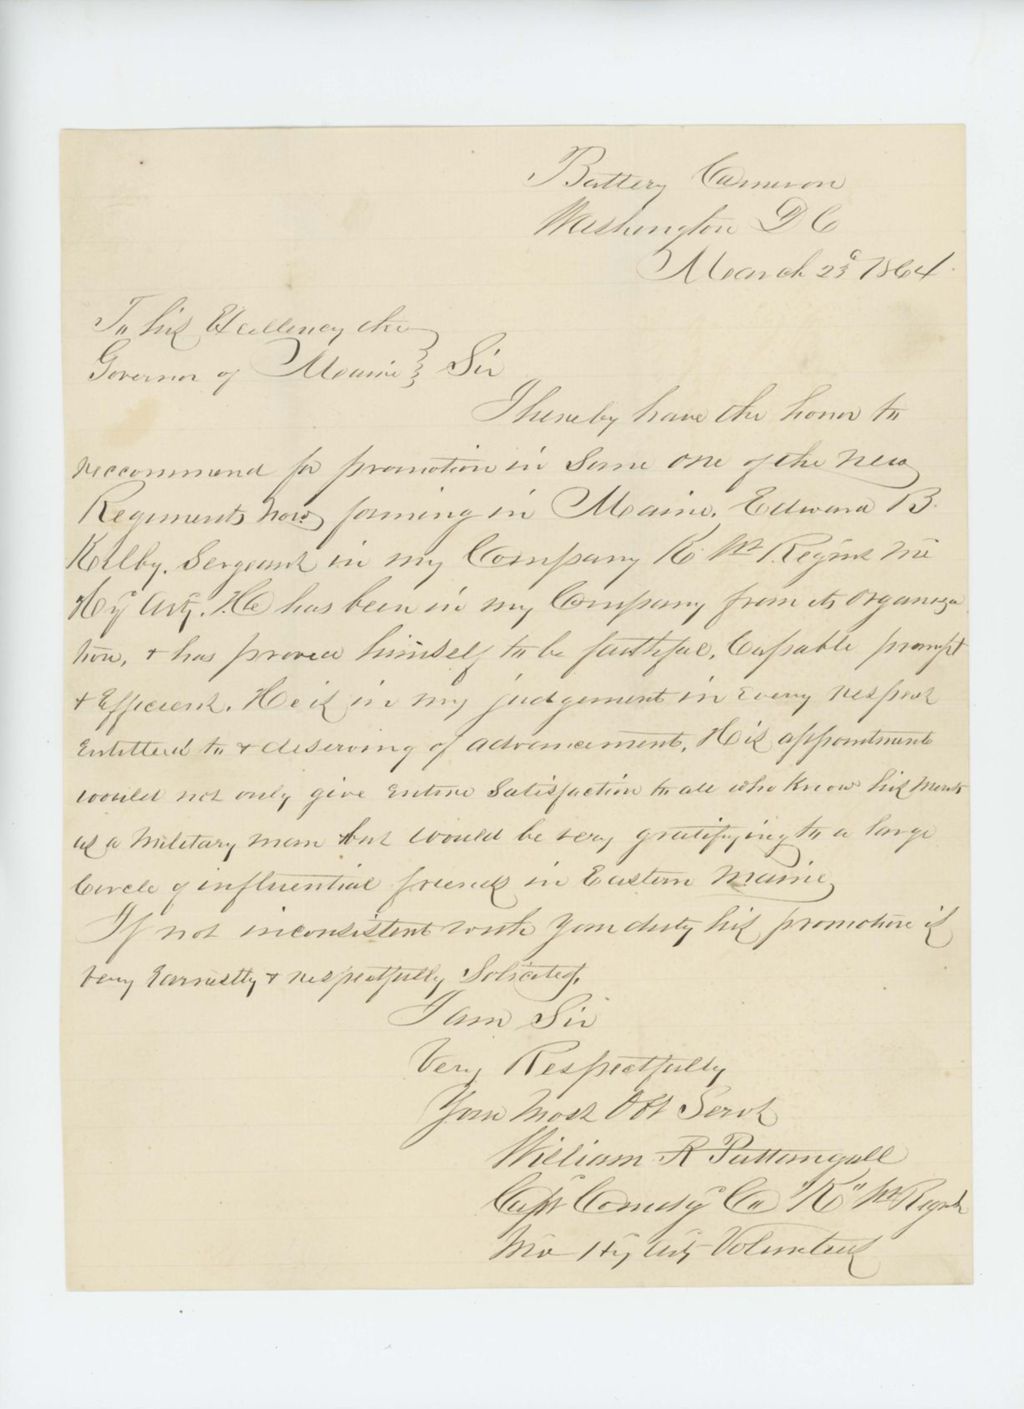 Battery Cameron
Washington D C
March 23d 1864.
To his Excellency the
Governor of Maine } Sir
I hereby have the honor to
reccommend for promotion in Some one of the new
Regiments now forming in Maine, Edward B.
Kilby. Sergeant in my Company K 1st Regmt Me
Hy Arty. He has been in my Company from its organiza
tion, & has proved himself to be faithful, Capable prompt
& Efficient. He is in my judgement in Every respect
Entitled to & deserving of advancement. His appointment
would not only give Entire Satisfaction to all who Know his Merits
as a Military man but would be very gratifying to a large
Circle of influential friends in Eastern Maine
If not inconsistent with Your duty his promotion is
very Earnestly & respectfully Solicited.
I am Sir
Very Respectfully
Your Most Obt Servt
William R Pattangall
Capt Comdg Co "K" 1st Regmt
Me Hy Arty Volunteers